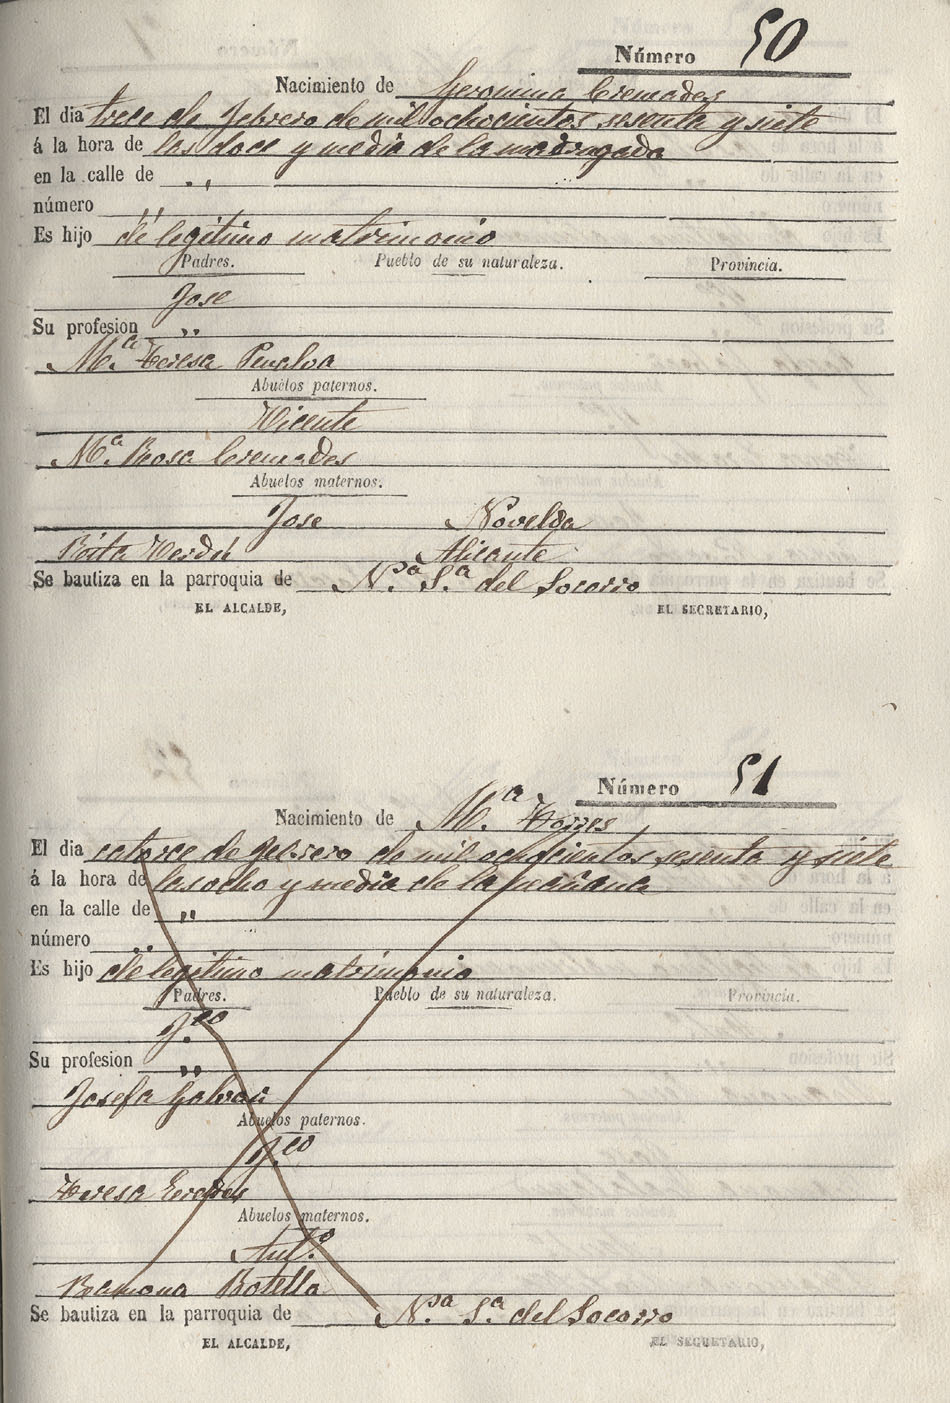 Número 50
Nacimiento de Geronima Cremades
El dia trece de Febrero de mil ochocientos sesenta y siete
á la hora de las doce y media de la madrugada
en la calle de „
número „
Es hijo de legitimo matrimonio
Padres. Pueblo de su naturaleza. Provincia.
Jose
Su profesion „
Mª. Teresa Penalva
Abuelos paternos.
Vicente
Mª. Rosa Cremades
Abuelos maternos.
Jose Novelda
Rita Verdú Alicante
Se bautiza en la parroquia de Nª. Sª. del Socorro
EL ALCALDE, EL SECRETARIO,
Número 51
Nacimiento de Mª. Torres
El dia catorce de Febrero de mil ochocientos sesenta y siete
á la hora de las ocho y media de la mañana
en la calle de „
número „
Es hijo de legitimo matrimonio
Padres. Pueblo de su naturaleza. Provincia.
F.co
Su profesion „
Josefa Galvañ
Abuelos paternos.
F.co
Teresa
Abuelos maternos.
Ant.º
Ramona Botella
Se bautiza en la parroquia de N.ra S.ª del Socorro
EL ALCALDE, EL SECRETARIO,